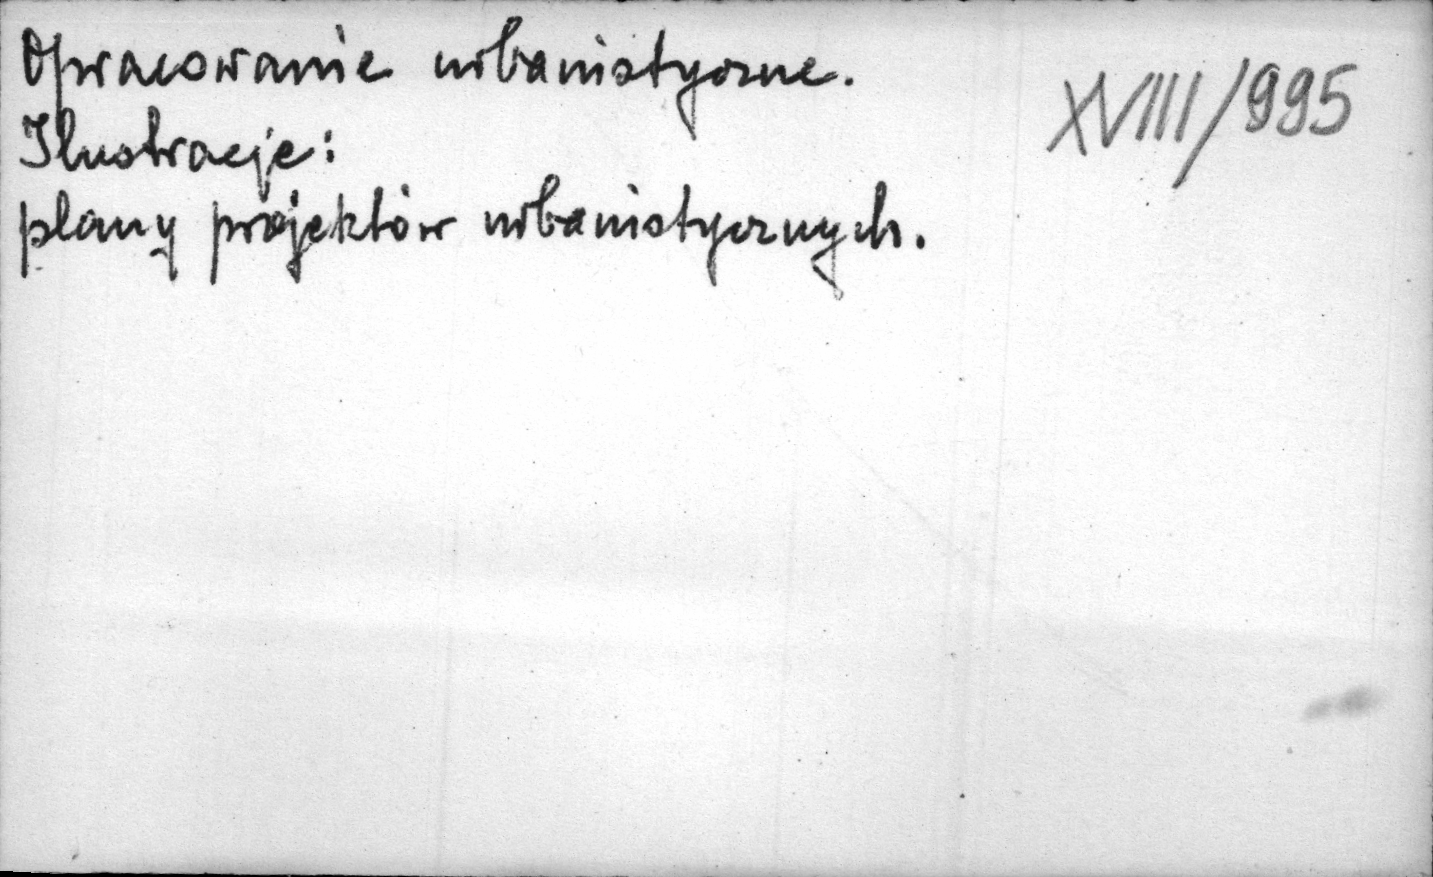 Opracowanie urbanistyczne.
XVIII/995
Ilustracje:
plany projektów urbanistycznych.